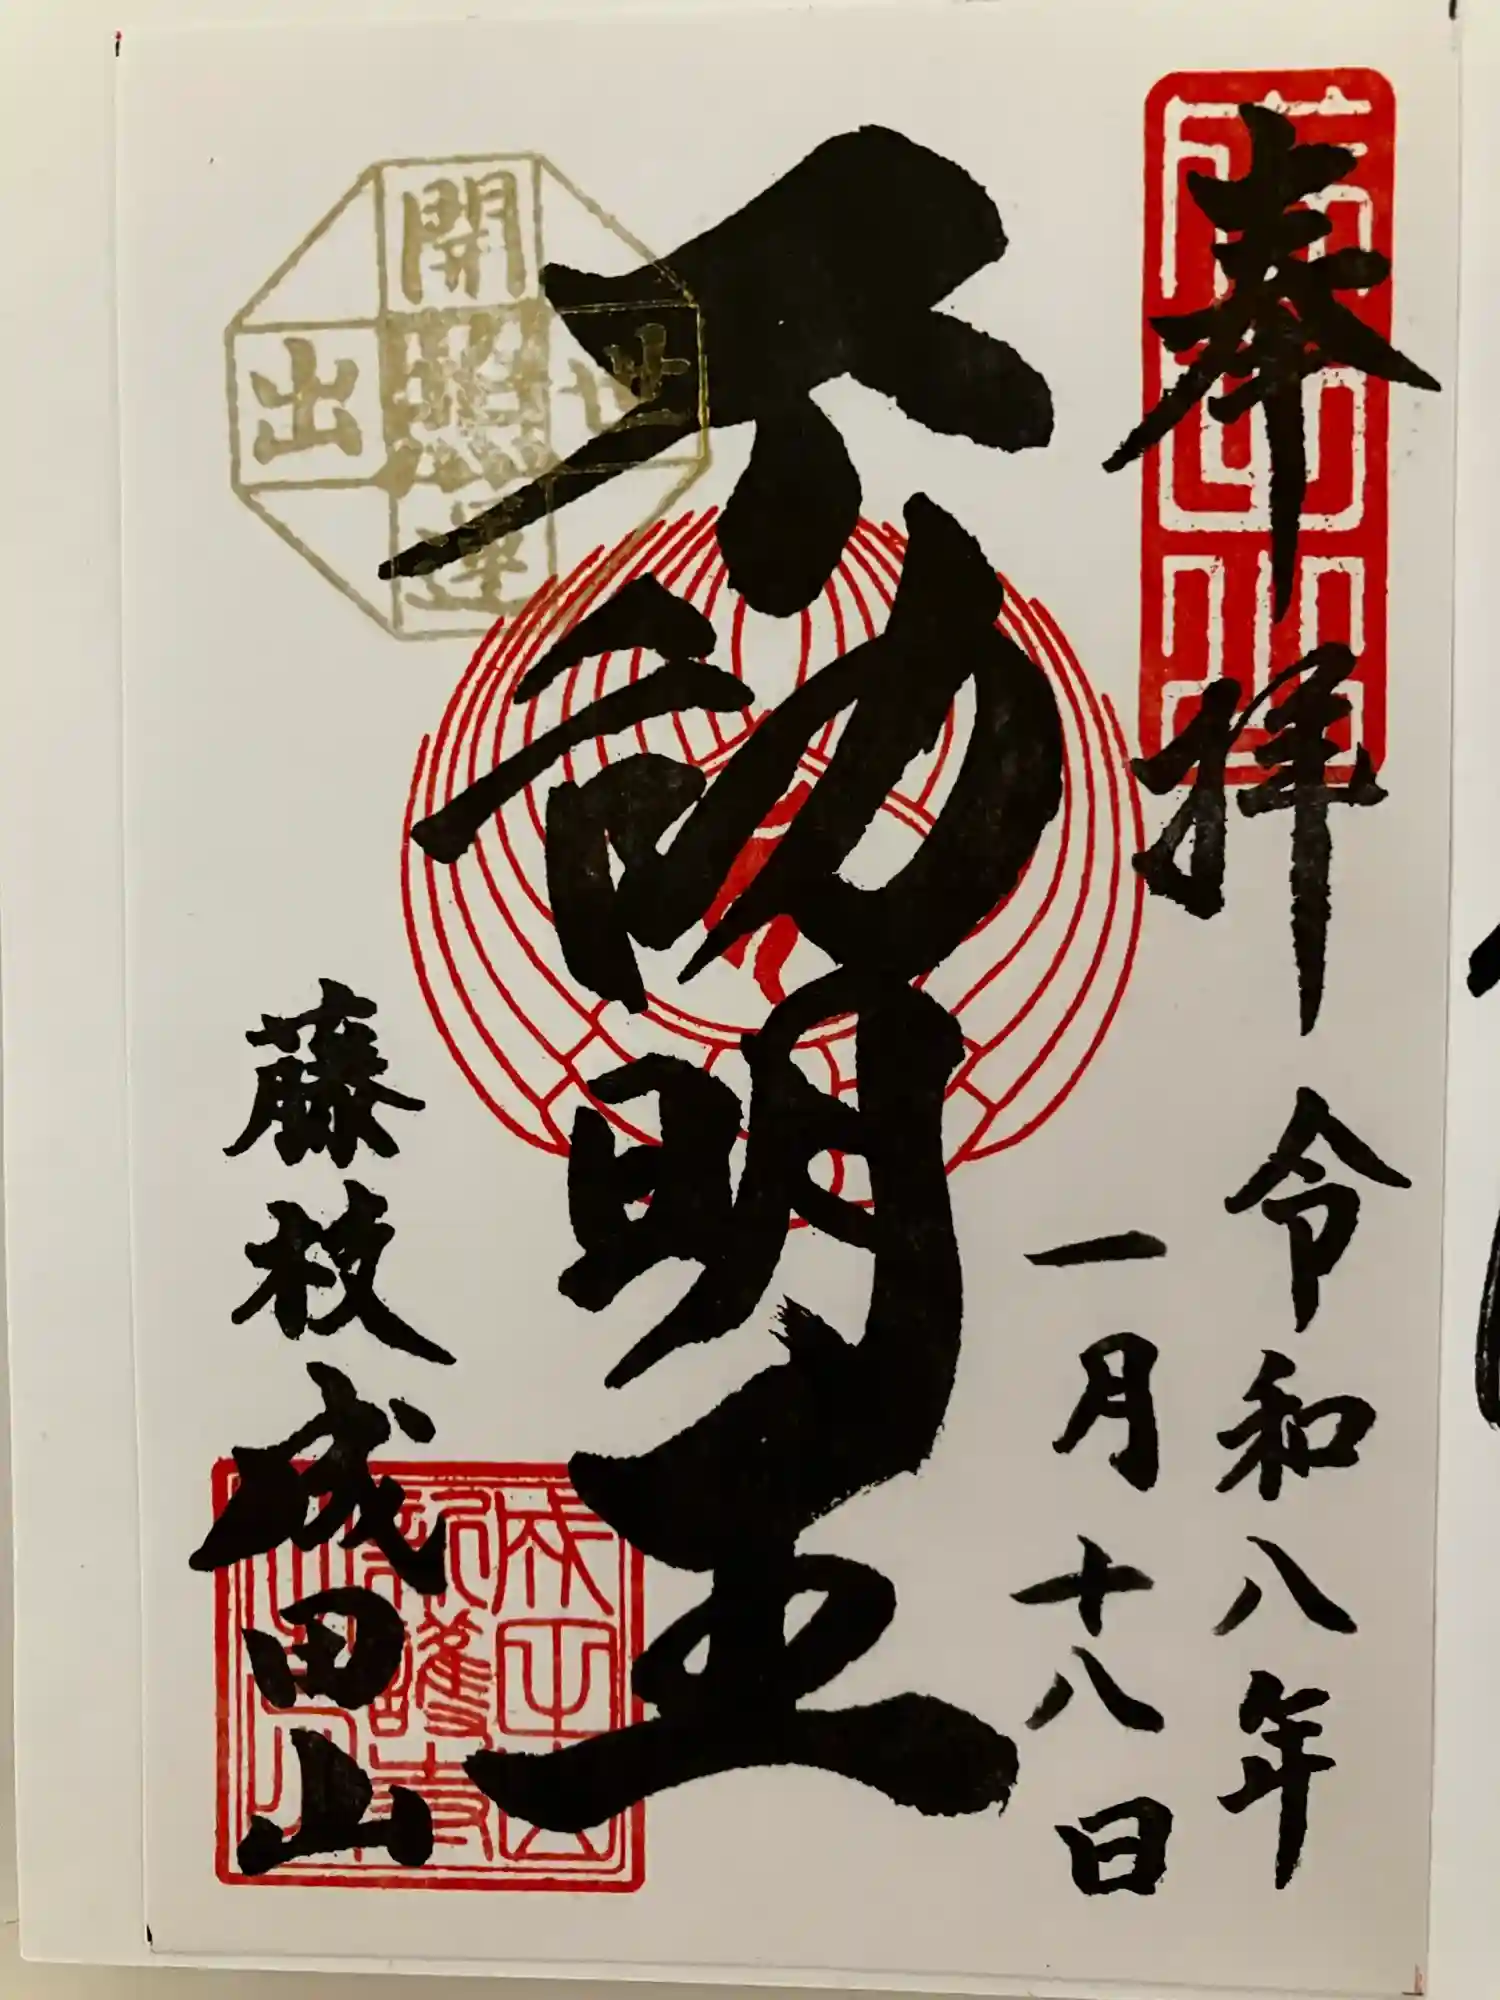 奉拝
令和八年
一月十八日
不動明王
開
出世
運
藤枝成田山